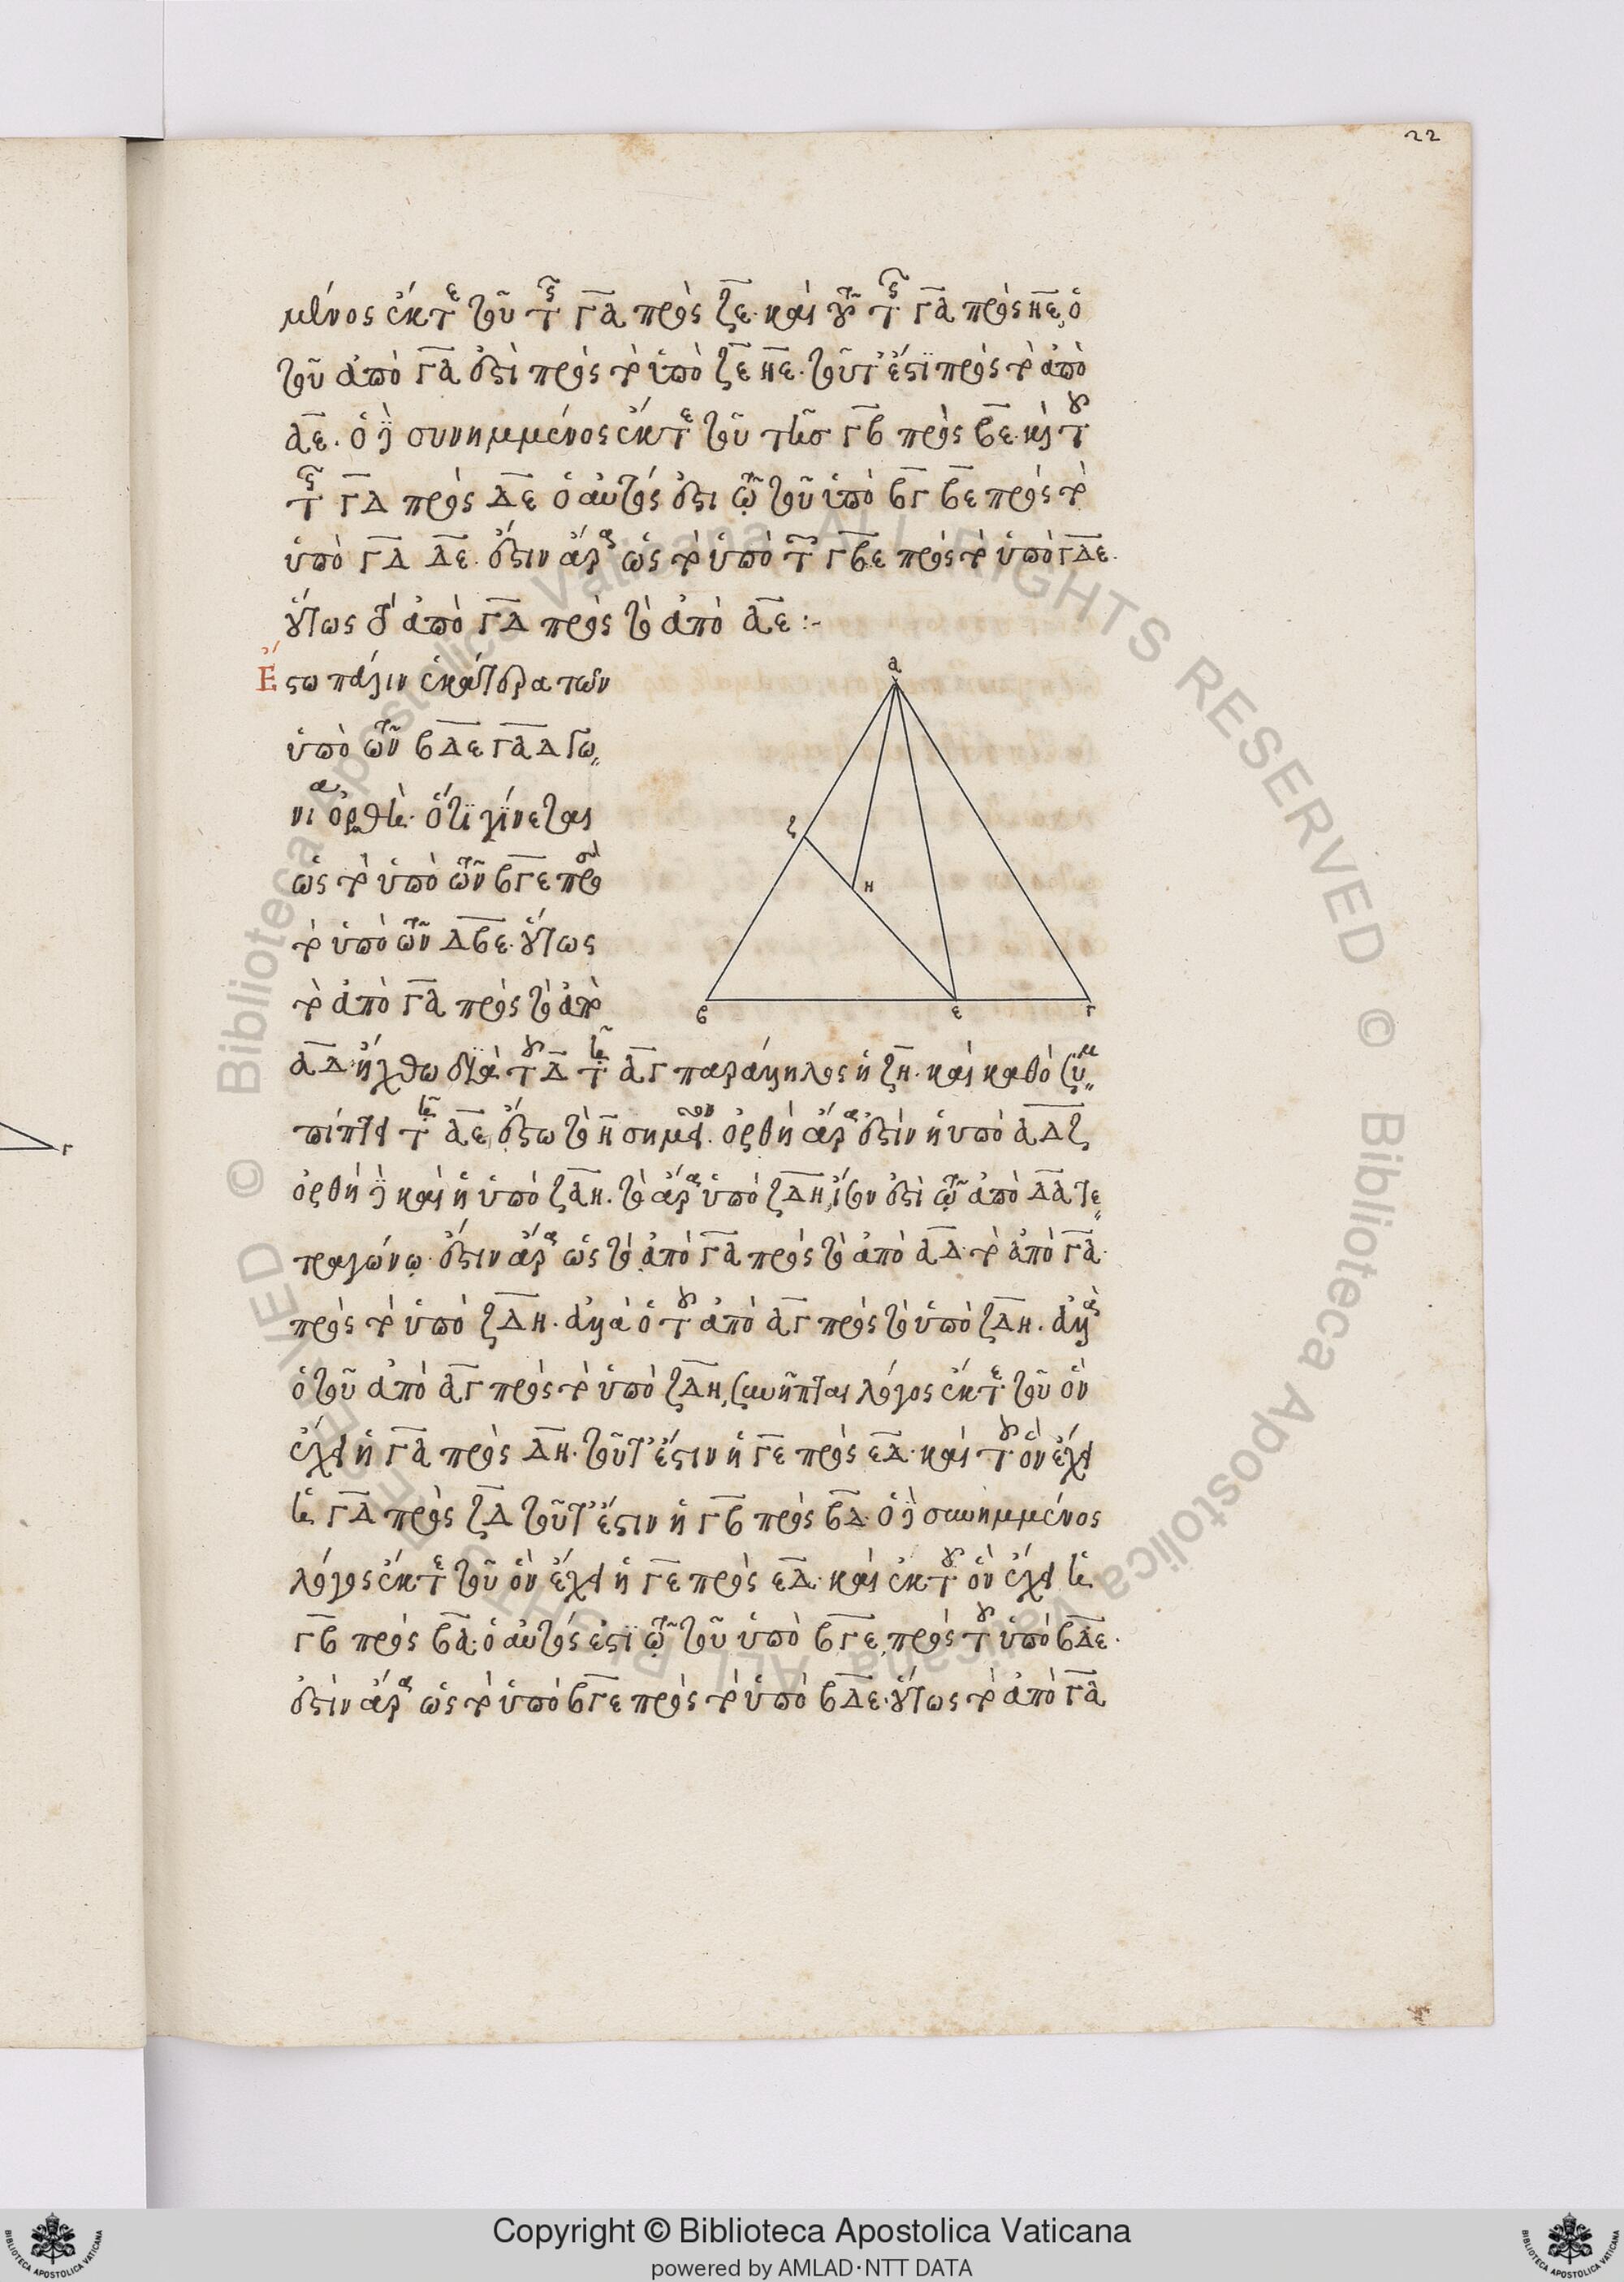 22
μένος ἔκ τε τοῦ τῆς ΓΑ πρὸς ΖΕ· καὶ τοῦ τῆς ΓΑ πρὸς ΗΕ, ὁ
τοῦ ἀπὸ ΓΑ ἐστὶ πρὸς τὸ ὑπὸ ΖΕ ΗΕ· τοῦτ' ἔστι πρὸς τὸ ἀπὸ
ΑΕ. ὁ δὲ συνημμένος ἔκ τε τοῦ τῆσ ΓΒ πρὸς ΒΕ· καὶ τοῦ
τῆς ΓΔ πρὸς ΔΕ ὁ αὐτός ἐστι τῷ τοῦ ὑπὸ ΒΓ ΒΕ πρὸς τὸ
ὑπὸ ΓΔ ΔΕ. ἔστιν ἄρα ὡς τὸ ὑπὸ τῶν ΓΒΕ πρὸς τὸ ὑπὸ ΓΔΕ.
οὕτως τὸ ἀπὸ ΓΔ πρὸς τὸ ἀπὸ ΑΕ :-
Ἔστω πάλιν ἑκατέρα τῶν
ὑπὸ τῶν ΒΔΕ ΓΑΔ γω
νία ὀρθή· ὅτι γίνεται
ὡς τὸ ὑπὸ τῶν ΒΓΕ πρὸς
τὸ ὑπὸ τῶν ΔΒΕ· οὕτως
τὸ ἀπὸ ΓΑ πρὸς τὸ ἀπὸ
ΑΔ· ἤχθω διὰ τοῦ Δ τῇ ΑΓ παράλληλος ἡ ΖΗ· καὶ καθὸ συμ
πίπτει τῇ ΑΕ, ἔστω τὸ Η σημεῖον. ὀρθὴ ἄρα ἐστὶν ἡ ὑπὸ ΑΔΖ
ὀρθὴ δὲ καὶ ἡ ὑπὸ ΖΑΗ. τὸ ἄρα ὑπὸ ΖΔΗ, ἴσον ἐστὶ τῷ ἀπὸ ΔΑ τε
τραγώνῳ· ἔστιν ἄρα ὡς τὸ ἀπὸ ΓΑ πρὸς τὸ ἀπὸ ΑΔ· τὸ ἀπὸ ΓΑ·
πρὸς τὸ ὑπὸ ΖΔΗ. ἀλλὰ ὁ τοῦ ἀπὸ ΑΓ πρὸς τὸ ὑπὸ ΖΔΗ. ἀλλὰ
ὁ τοῦ ἀπὸ ΑΓ πρὸς τὸ ὑπὸ ΖΔΗ, συνῆπται λόγος ἔκ τε τοῦ ὃν
ἔχει ἡ ΓΑ πρὸς ΔΗ· τοῦτ' ἔστιν ἡ ΓΕ πρὸς ΕΔ· καὶ τοῦ ὃν ἔχει
ἡ ΓΔ πρὸς ΖΔ τοῦτ' ἔστιν ἡ ΓΒ πρὸς ΒΔ· ὁ δὲ συνημμένος
λόγος ἔκ τε τοῦ ὃν ἔχει ἡ ΓΕ πρὸς ΕΔ· καὶ ἐκ τοῦ ὃν ἔχει ἡ
ΓΒ πρὸς ΒΔ· ὁ αὐτός ἐστι τῷ τοῦ ὑπὸ ΒΓΕ, πρὸς τοῦ ὑπὸ ΒΔΕ·
ἔστιν ἄρα ὡς τὸ ὑπὸ ΒΓΕ πρὸς τὸ ὑπὸ ΒΔΕ· οὕτως τὸ ἀπὸ ΓΑ
Α
Ζ
Η
Β
Ε
Γ
Γ
Copyright © Biblioteca Apostolica Vaticana
powered by AMLAD·NTT DATA